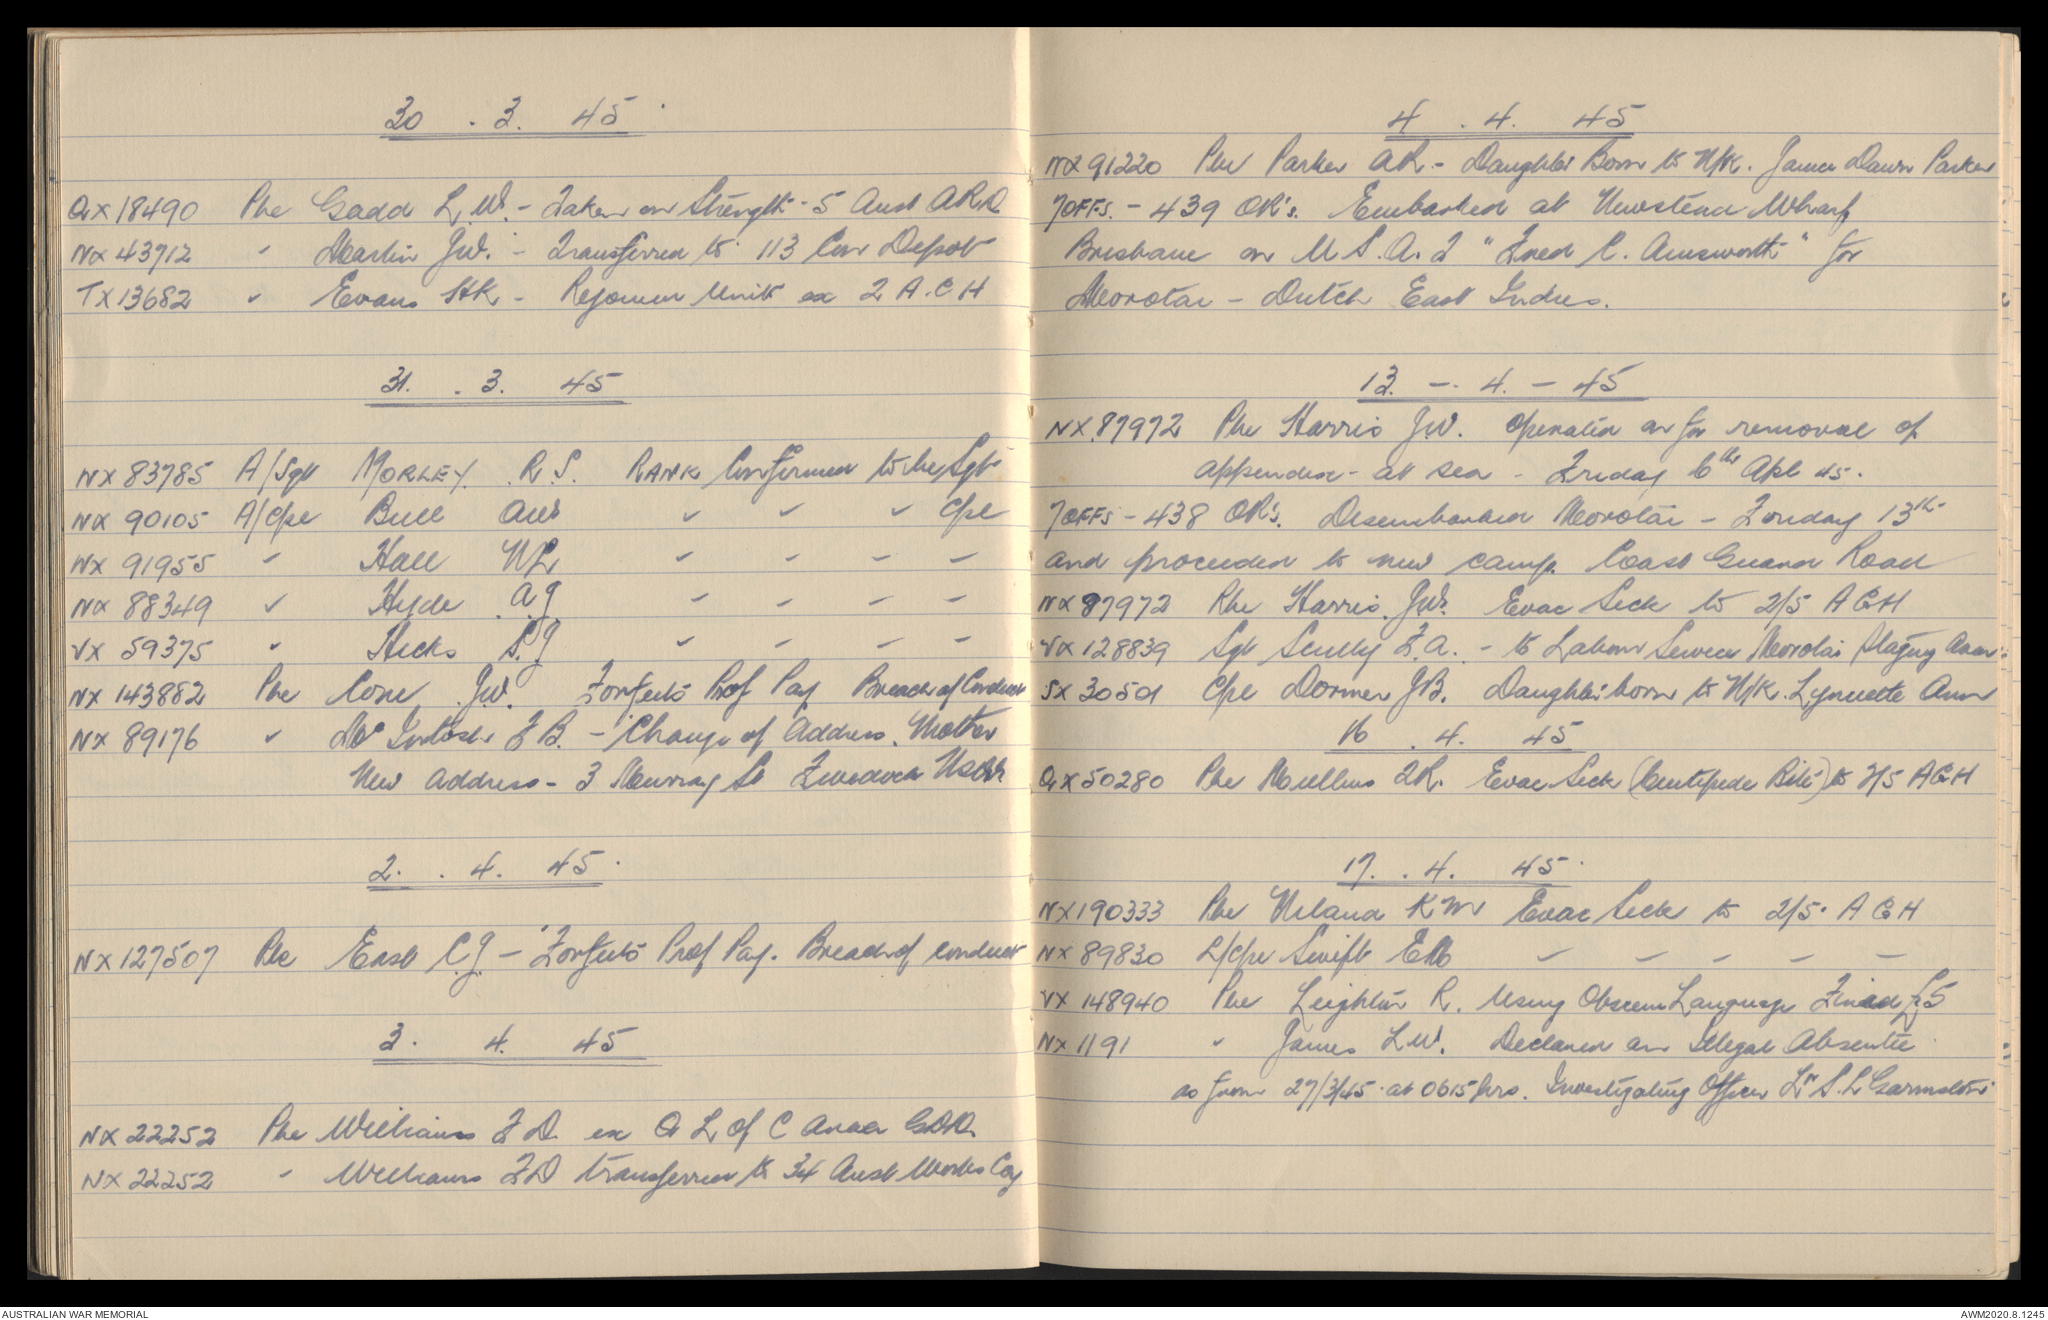 30 . 3. 45.
QX18490 Pte Gadd L.W. - Taken on Strength - 5 Aust A.R.D.
NX43712 " Martin J.W. - Transferred to 113 Con Depot
TX13682 " Evans H.K - Rejoined Unit ex 2 A.C.H
31. . 3. 45
NX83785 A/Sgt MORLEY. R.S. RANK Confirmed to be Sgt
NX90105 A/Cpl Bull " " " Cpl
NX91955 " Hall " - - -
NX88349 " Hyde A J " - - -
VX59375 " Hicks S.J " - - -
NX143882 Pte J.W. Forfeits Prof Pay Breach of Conduct
NX89176 " McIntosh F B. - Change of Address. Mother
New address - 3 Murray St
2. . 4. 45.
NX127507 Pte East C.J - Forfeits Prof Pay. Breach of conduct
3. 4. 45
NX22252 Pte Williams F D. ex Q L of C Area G.D.D.
NX22252 " Williams F D transferred to 34 Aust Works Coy
4 . 4. 45
NX91220 Pte Parker A.R. - Daughter Born to N/K. Dawn Parker
7OFFS. - 439 OR's. Embarked at Newstead Wharf,
Brisbane on U S. A. T "Fred C. Ainsworth" for
Morotai - Dutch East Indies.
13. -. 4. - 45
NX.87972 Pte Harris J.W. Operated on for removal of
appendix - at sea - Friday 6th Apl 45.
7OFFS - 438 OR's. Disembarked Morotai - Friday 13th -
and proceeded to new camp. Coast Guard Road
NX87972 Pte Harris. J.W. Evac Sick to 2/5 A G H
VX128839 Sgt Scully F.A. - to Labour Service Morotai Staging Area
SX 30501 Cpl Dormer J.B. Daughter born to N/K. Lynette Ann
16 . 4. 45
QX50280 Pte Mullins Evac Sick (Centipede Bite) to 2/5 A G H
17. . 4. 45.
NX190333 Pte K Evac Sick to 2/5. A G H
NX89830 L/Cpl Swift " - - - -
VX148940 Pte Leighton R. Using Obscene Language Fined £5
NX1191 " James L.W. Declared an Illegal Absentee
as from 27/3/45 at 0615 hrs. Investigating Officer Lt S.L Garmston